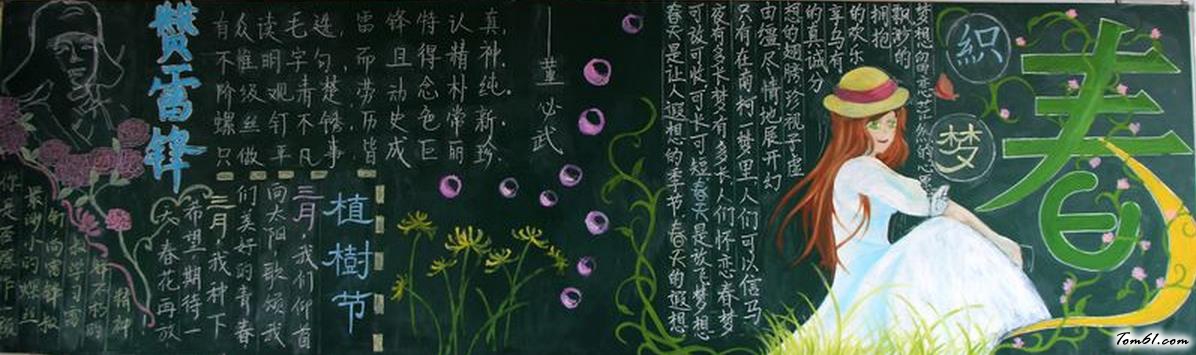 赞雷锋
有众读毛选,雷锋特认真,
不惟明字句,而且得精神.
阶级观青楚,劳动念朴纯.
螺丝钉不锈,历史色常新.
只做平凡事,皆成巨丽珍.
——董必武
植樹节
三月,我们仰首
向太阳,歌颂我
们美好的青春
三月,我种下
希望,期待一
次春花再放
你是否愿作一颗
最渺小的螺丝
钉向雷锋叔
学习雷
精神
春
織
梦
春天是让人遐想的季节,春天的遐想
可放可收可长可短,春天是放飞梦想
夜有多长梦有多长,人们怀恋春梦
只有在南柯一梦里,人们可以信马
由缰,尽情地展开幻
想的翅膀,珍视子虚
的真诚分
享乌有
的欢乐
拥抱
飘渺的
梦想
Tom61.com